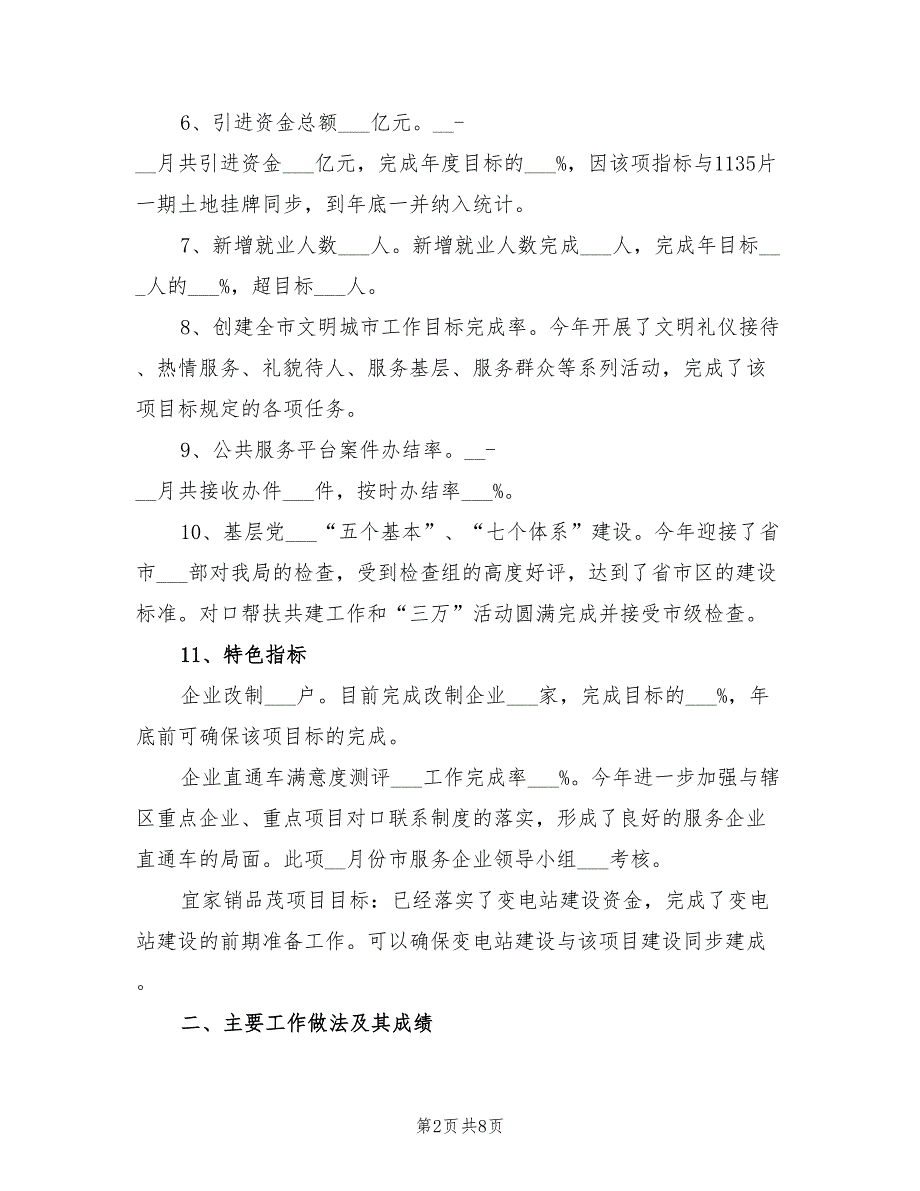 6、引进资金总额___亿元。__-
__月共引进资金___亿元，完成年度目标的___%，因该项指标与1135片
一期土地挂牌同步，到年底一并纳入统计。
7、新增就业人数___人。新增就业人数完成___人，完成年目标__
_人的___%，超目标___人。
8、创建全市文明城市工作目标完成率。今年开展了文明礼仪接待
、热情服务、礼貌待人、服务基层、服务群众等系列活动，完成了该
项目标规定的各项任务。
9、公共服务平台案件办结率。__-
__月共接收办件___件，按时办结率___%。
10、基层党___“五个基本”、“七个体系”建设。今年迎接了省
市___部对我局的检查，受到检查组的高度好评，达到了省市区的建设
标准。对口帮扶共建工作和“三万”活动圆满完成并接受市级检查。
11、特色指标
企业改制___户。目前完成改制企业___家，完成目标的___%，年
底前可确保该项目标的完成。
企业直通车满意度测评___工作完成率___%。今年进一步加强与辖
区重点企业、重点项目对口联系制度的落实，形成了良好的服务企业
直通车的局面。此项__月份市服务企业领导小组___考核。
宜家销品茂项目目标：已经落实了变电站建设资金，完成了变电
站建设的前期准备工作。可以确保变电站建设与该项目建设同步建成
。
二、主要工作做法及其成绩
第2页 共8页